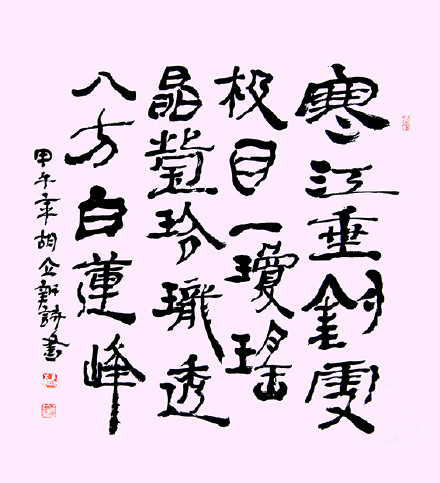 寒江垂釣叟
极目一瓊瑤
晶瑩玲瓏透
八方白蓮峰
甲午年胡詩書